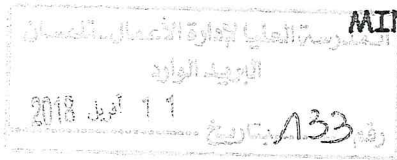 MI
المدرسة العليا لإدارة الأعمال تلمسان
البريد الوارد
11 أفريل 2018
رقم 133 بتاريخ